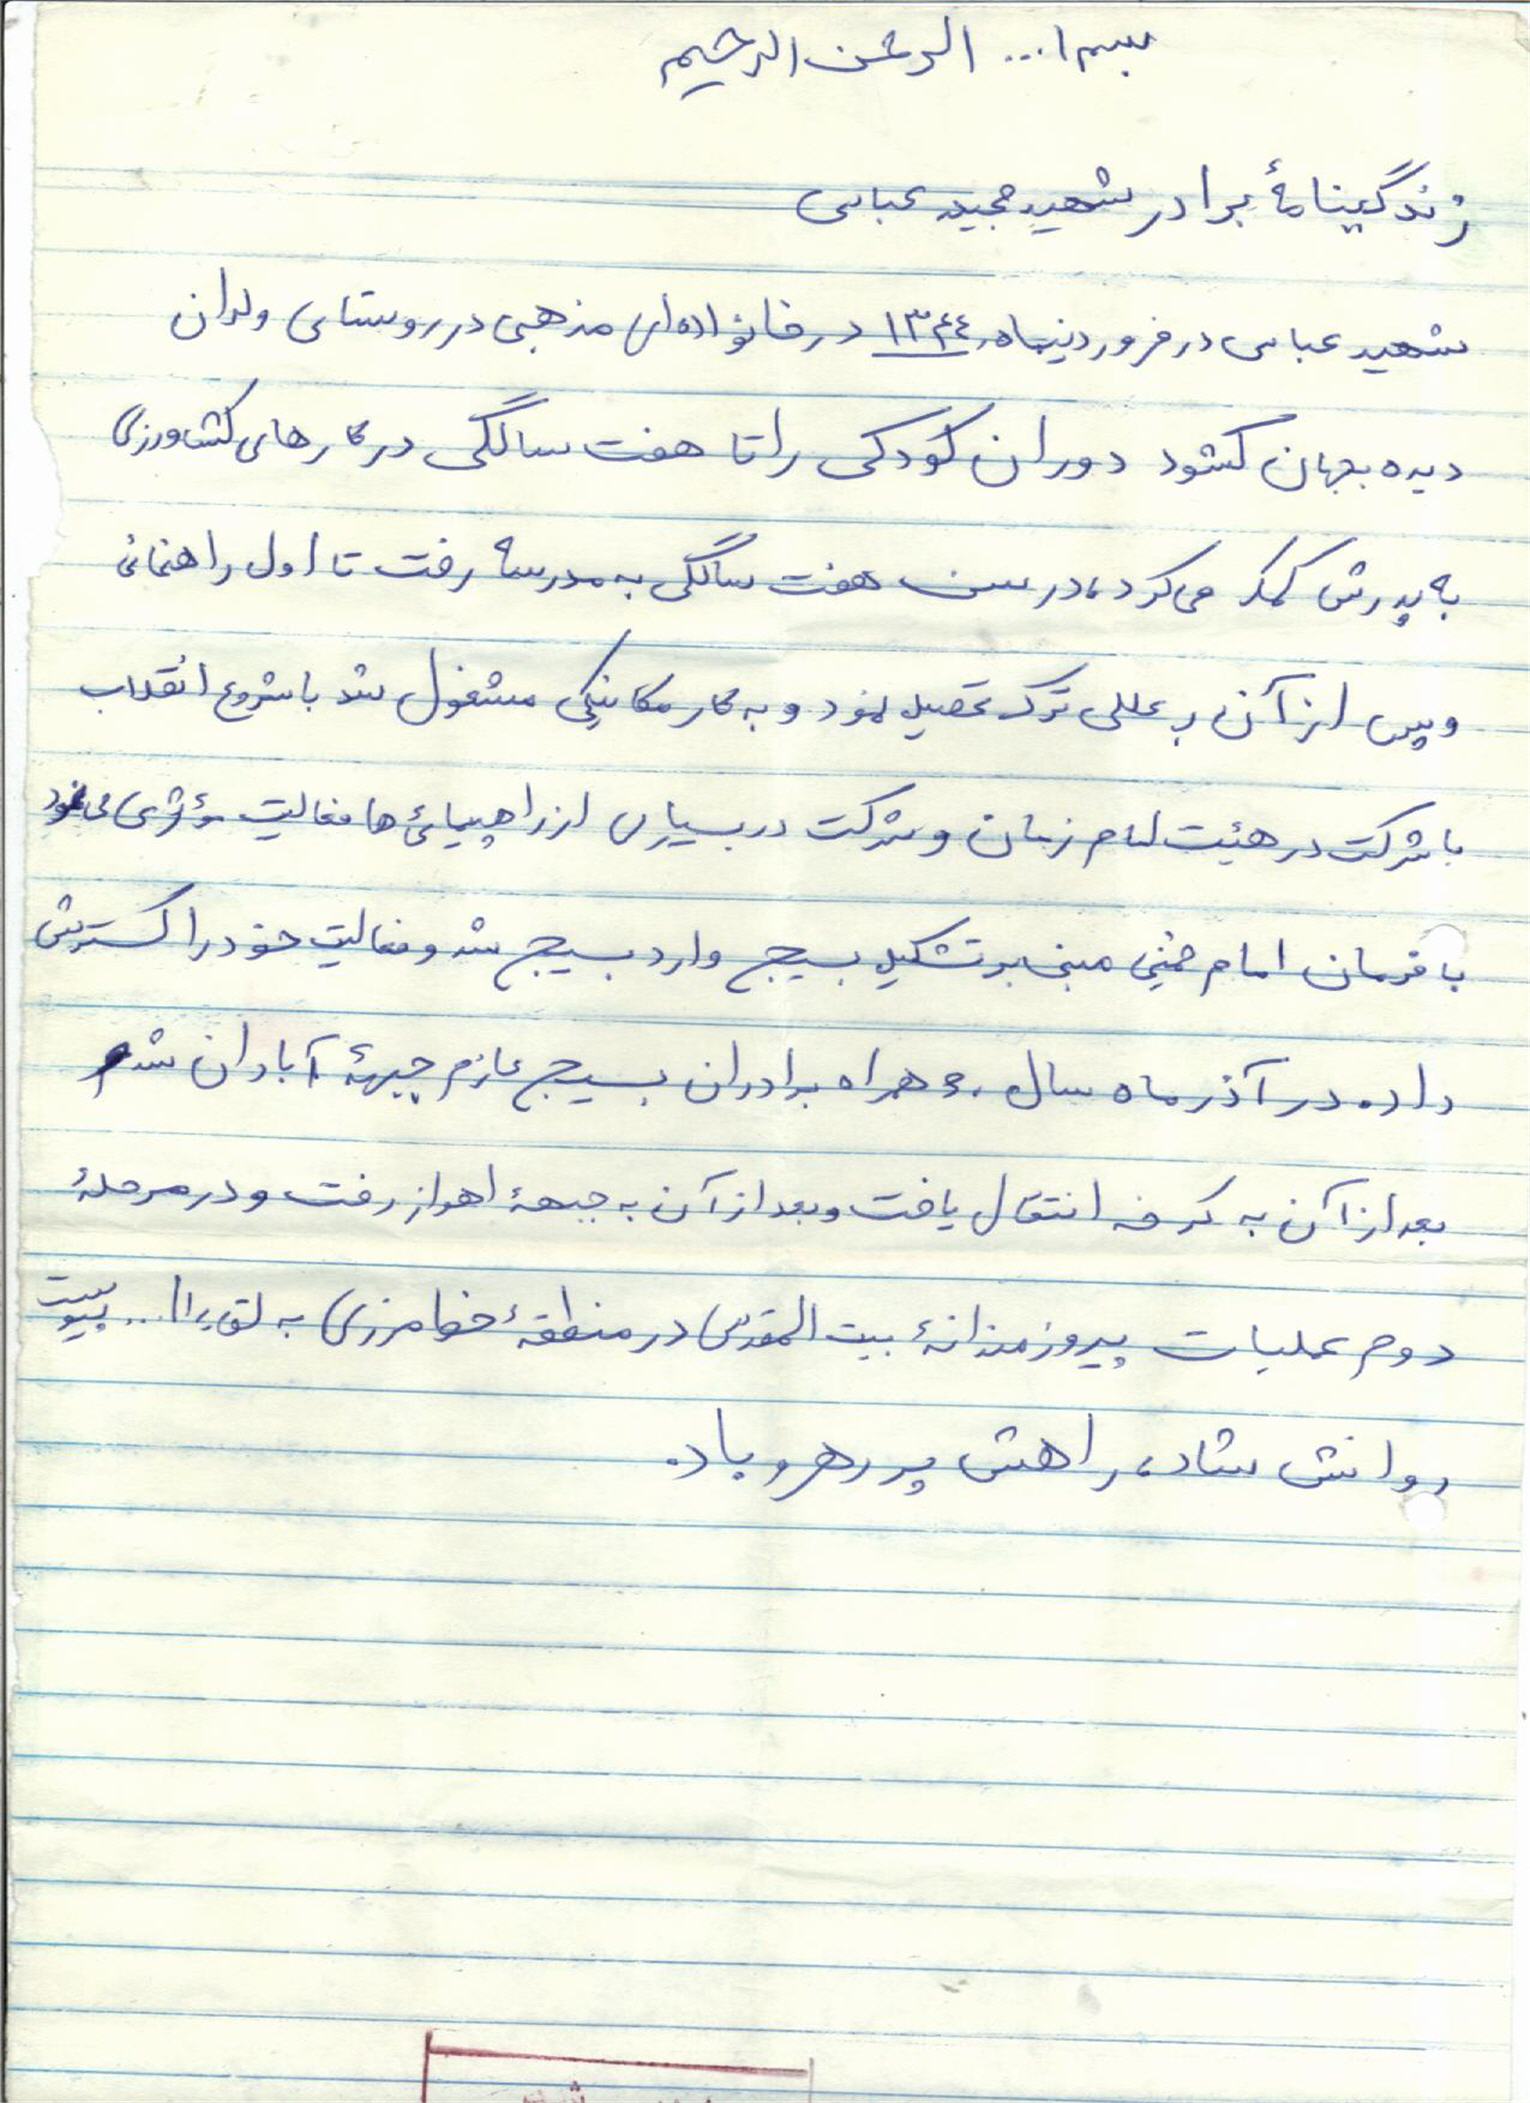 بسم ا... الرحمن الرحیم
زندگینامهٔ برادر شهید مجید عباسی
شهید عباسی در فروردینماه ۱۳۴۴ در خانواده‌ای مذهبی در روستای ولدان
دیده بجهان گشود دوران کودکی را تا هفت سالگی در کارهای کشاورزی
به پدرش کمک می‌کرد، در سن هفت سالگی به مدرسه رفت تا اول راهنمائی
و پس از آن بر عللی ترک تحصیل نمود و به کار مکانیکی مشغول شد با شروع انقلاب
با شرکت در هیئت امام زمان و شرکت در بسیاری از راهپیمائی‌ها فعالیت مؤثری می‌نمود
با فرمان امام خمینی مبنی بر تشکیل بسیج وارد بسیج شد و فعالیت خود را گسترش
داد. در آذر ماه سال ۶۰ همراه برادران بسیج عازم جبههٔ آبادان شد
بعد از آن به کرخه انتقال یافت و بعد از آن به جبههٔ اهواز رفت و در مرحلهٔ
دوم عملیات پیروزمندانهٔ بیت المقدس در منطقهٔ خط مرزی به لقاء ا... پیوست
روانش شاد، راهش پر رهرو باد.